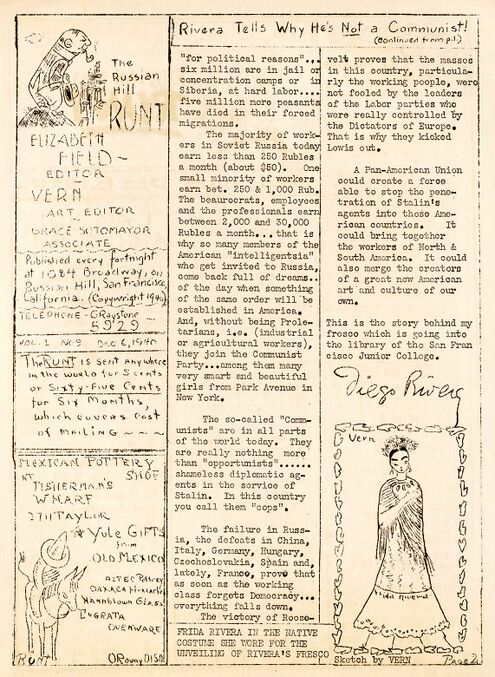 Rivera Tells Why He's Not a Communist!
(Continued from p.1)
The
Russian
Hill
RUNT
ELIZABETH
FIELD-
EDITOR
VERN
ART EDITOR
GRACE SOTOMAYOR
ASSOCIATE
Published every fortnight
at 1084 Broadway, on
Russian Hill, San Francisco,
California. (Copyright 1940)
TELEPHONE - GRaystone
5929
VOL. 1 No 9 Dec 6, 1940
The RUNT is sent anywhere
in the world for 5 cents
or Sixty-Five Cents
for Six Months,
which covers cost
of mailing ~ ~ ~
MEXICAN POTTERY
SHOP
AT
FISHERMAN'S
WHARF
2711 TAYLOR
Yule GIFTS
from
OLD MEXICO
Pottery
OAXACA
Handblown Glass
OVENWARE
RUNT
"for political reasons"...
six million are in jail or
concentration camps or in
Siberia, at hard labor....
five million more peasants
have died in their forced
migrations.
The majority of work-
ers in Soviet Russia today
earn less than 250 Rubles
a month (about $50). One
small minority of workers
earn bet. 250 & 1,000 Rub.
The beaurocrats, employees
and the professionals earn
between 2,000 and 30,000
Rubles a month...that is
why so many members of the
American "intelligentsia"
who get invited to Russia,
come back full of dreams..
of the day when something
of the same order will be
established in America.
And, without being Prole-
tarians, i.e. (industrial
or agricultural workers),
they join the Communist
Party...among them many
very smart and beautiful
girls from Park Avenue in
New York.
The so-called "Comm-
unists" are in all parts
of the world today. They
are really nothing more
than "opportunists"......
shameless diplomatic ag-
ents in the service of
Stalin. In this country
you call them "cops".
The failure in Russ-
ia, the defeats in China,
Italy, Germany, Hungary,
Czechoslovakia, Spain and,
lately, France, prove that
as soon as the working
class forgets Democracy...
everything falls down.
The victory of Roose-
FRIDA RIVERA IN THE NATIVE
COSTUME SHE WORE FOR THE
UNVEILING OF RIVERA'S FRESCO
velt proves that the masses
in this country, particula-
rly the working people, were
not fooled by the leaders
of the Labor parties who
were really controlled by
the Dictators of Europe.
That is why they kicked
Lewis out.
A Pan-American Union
could create a force
able to stop the pene-
tration of Stalin's
agents into those Ame-
rican countries. It
could bring together
the workers of North &
South America. It could
also merge the creators
of a great new American
art and culture of our
own.
This is the story behind my
fresco which is going into
the library of the San Fran
cisco Junior College.
Diego Rivera
Vern
Frida Rivera
Sketch by VERN
Page 2